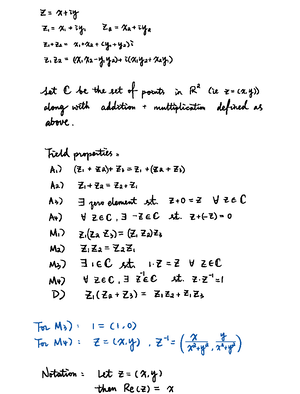 Z = x+iy
Z₁ = x₁+iy₁ Z₂ = x₂+iy₂
Z₁+Z₂ = x₁+x₂+(y₁+y₂)i
Z₁Z₂ = (x₁x₂-y₁y₂)+i(x₁y₂+x₂y₁)
Let ℂ be the set of points in R² (ie z=(x,y))
along with addition + multiplication defined as
above.
Field properties:
A1) (Z₁+Z₂)+Z₃=Z₁+(Z₂+Z₃)
A2) Z₁+Z₂=Z₂+Z₁
A3) ∃ zero element st. Z+0=Z ∀ Z∈ℂ
A4) ∀ Z∈ℂ, ∃ -Z∈ℂ st. Z+(-Z)=0
M1) Z₁(Z₂Z₃)=(Z₁Z₂)Z₃
M2) Z₁Z₂=Z₂Z₁
M3) ∃ 1∈ℂ st. 1·Z=Z ∀ Z∈ℂ
M4) ∀ Z∈ℂ, ∃ Z⁻¹∈ℂ st. Z·Z⁻¹=1
D) Z₁(Z₂+Z₃) = Z₁Z₂+Z₁Z₃
For M3): 1=(1,0)
For M4): Z=(x,y), Z⁻¹=(x/(x²+y²), y/(x²+y²))
Notation: Let Z=(x,y)
then Re(Z) = x